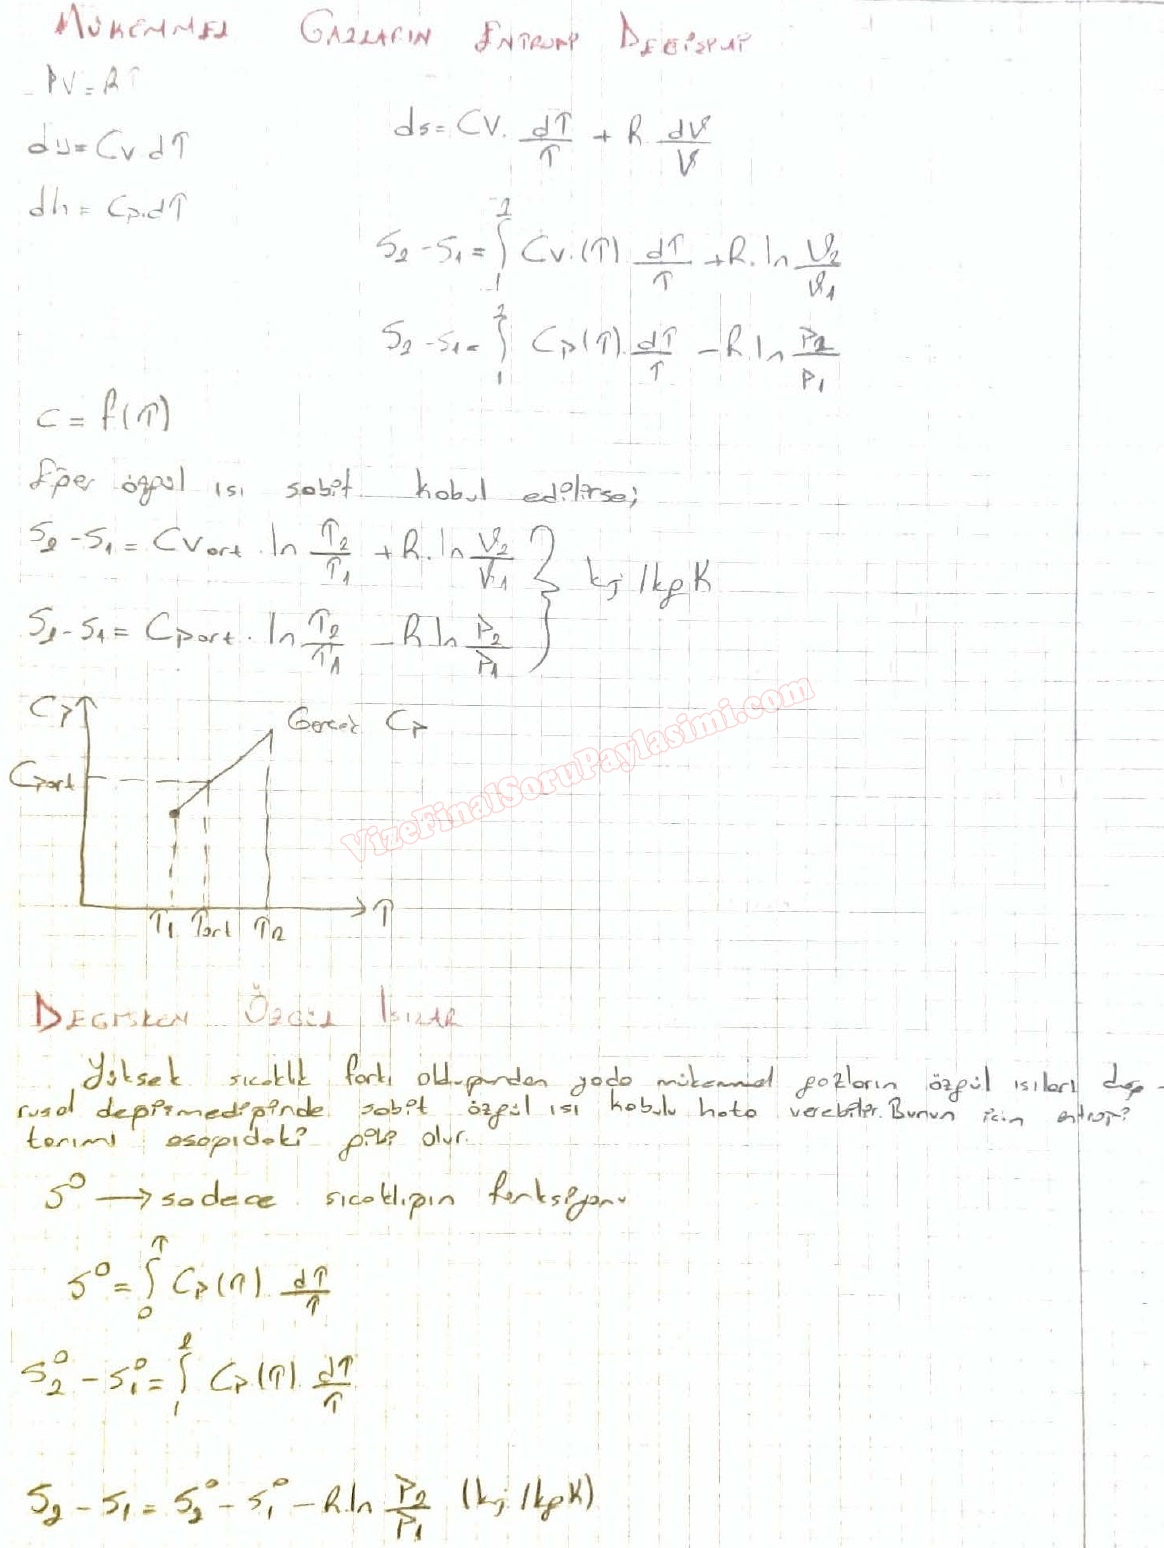 MÜKEMMEL GAZLARIN ENTROPİ DEĞİŞİMİ
PV = RT
ds = Cv . dT/T + R dV/V
du = Cv dT
dh = Cp.dT
S2 - S1 = ∫₁² Cv.(T) dT/T + R. ln V2/V1
S2 - S1 = ∫₁² Cp(T) dT/T - R ln P2/P1
C = f(T)
Eğer özgül ısı sabit kabul edilirse;
S2 - S1 = Cvort . ln T2/T1 + R. ln V2/V1 } kj/kgK
S2 - S1 = Cport . ln T2/T1 - R ln P2/P1
Cp
Gerçek Cp
Cport
T1 Tort T2 T
VizeFinalSoruPaylasimi.com
DEĞİŞKEN ÖZGÜL ISILAR
Yüksek sıcaklık farkı olduğundan yada mükemmel gazların özgül ısıları doğ-
rusal değişmediğinde sabit özgül ısı kabulu hata verebilir. Bunun için entropi
terimi aşağıdaki gibi olur.
S⁰ → sadece sıcaklığın fonksiyonu
S⁰ = ∫₀ᵀ Cp(T) dT/T
S2⁰ - S1⁰ = ∫₁² Cp(T) dT/T
S2 - S1 = S2⁰ - S1⁰ - R.ln P2/P1 (kj/kgK)